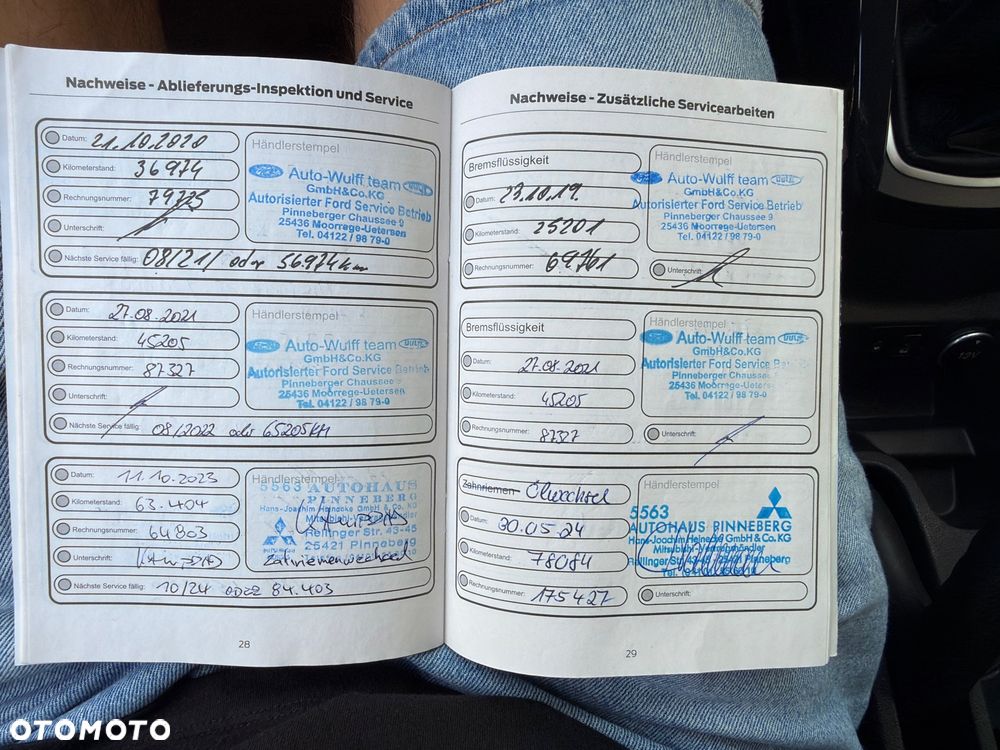 Nachweise - Ablieferungs-Inspektion und Service
Datum: 21.10.2020
Kilometerstand: 36974
Rechnungsnummer: 79725
Unterschrift:
Nächste Service fällig: 08/21/ oder 56.974 km
Händlerstempel
Auto-Wulff team
GmbH&Co.KG
Autorisierter Ford Service Betrieb
Pinneberger Chaussee 9
25436 Moorrege-Uetersen
Tel. 04122 / 98 79-0
Datum: 27.08.2021
Kilometerstand: 45205
Rechnungsnummer: 87327
Unterschrift:
Nächste Service fällig: 08/2022 oder 65205 KM
Händlerstempel
Auto-Wulff team
GmbH&Co.KG
Autorisierter Ford Service Betrieb
Pinneberger Chaussee
25436 Moorrege-Uetersen
Tel. 04122 / 98 79-0
Datum: 11.10.2023
Kilometerstand: 63.404
Rechnungsnummer: 64803
Unterschrift:
Nächste Service fällig: 10/24 ODER 84.403
Händlerstempel
5563 AUTOHAUS
PINNEBERG
Hans-Joachim Heinecke GmbH & Co. KG
Rellinger Str. 43-45
25421 Pinneberg
Zahnriemenwechsel
28
Nachweise - Zusätzliche Servicearbeiten
Bremsflüssigkeit
Datum: 23.10.19.
Kilometerstand: 25201
Rechnungsnummer: 69761
Händlerstempel
Auto-Wulff team
GmbH&Co.KG
Autorisierter Ford Service Betrieb
Pinneberger Chaussee 9
25436 Moorrege-Uetersen
Tel. 04122 / 98 79-0
Unterschrift:
Bremsflüssigkeit
Datum: 27.08.2021
Kilometerstand: 45205
Rechnungsnummer: 87327
Händlerstempel
Auto-Wulff team
GmbH&Co.KG
Autorisierter Ford Service Betrieb
Pinneberger Chaussee
25436 Moorrege-Uetersen
Tel. 04122 / 98 79-0
Unterschrift:
Zahnriemen Ölwechsel
Datum: 30.05.24
Kilometerstand: 78084
Rechnungsnummer: 175427
Händlerstempel
5563
AUTOHAUS PINNEBERG
Hans-Joachim Heinecke GmbH & Co. KG
Mitsubishi-Vertragshändler
Rellinger Str. 43-45 25421 Pinneberg
Unterschrift:
29
12V
OTOMOTO